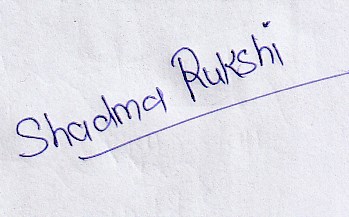 Shadma Rukshi